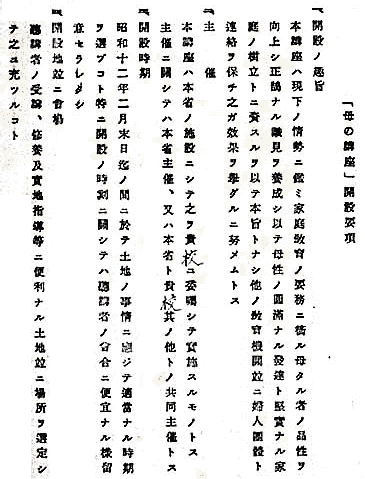 「母の講座」開設要項
一、開設ノ趣旨
本講座ハ現下ノ情勢ニ鑑ミ家庭教育ノ要務ニ膺ル母タル者ノ品性ヲ
向上シ正鵠ナル識見ヲ養成シ以テ母性ノ圓滿ナル發達ト堅實ナル家
庭ノ樹立トニ資スルヲ以テ本旨トナシ他ノ教育機關竝ニ婦人團體ト
連絡ヲ保チ之ガ效果ヲ擧グルニ努メムトス
一、主催
本講座ハ本省ノ施設ニシテ之ヲ貴校ニ委囑シテ實施スルモノトス
主催ニ關シテハ本省主催、又ハ本省ト貴校其ノ他トノ共同主催トス
一、開設時期
昭和十二年二月末日迄ノ間ニ於テ土地ノ事情ニ應ジテ適當ナル時期
ヲ選ブコト特ニ開設ノ時刻ニ關シテハ聽講者ノ會合ニ便宜ナル樣留
意セラレタシ
一、開設地竝ニ會場
聽講者ノ受講、修養及實地指導等ニ便利ナル土地竝ニ場所ヲ選定シ
テ之ニ充ツルコト